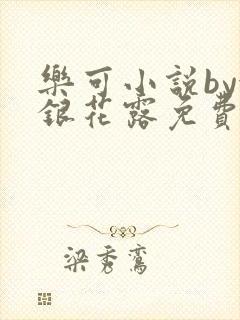 樂可小說by
銀花露免費
梁秀鸞